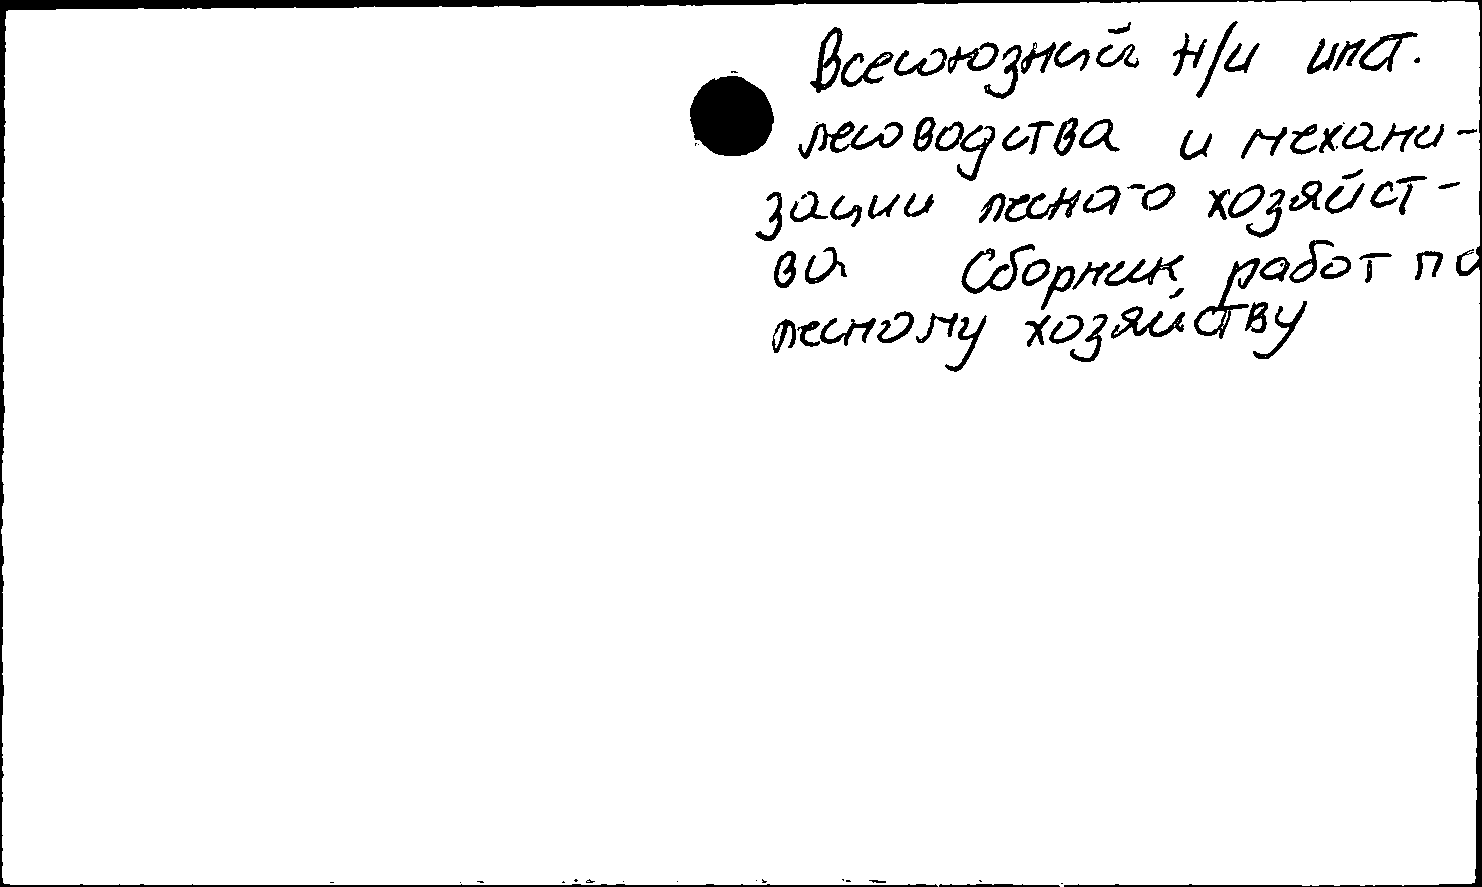 Всесоюзный н/и инст.
лесоводства и механи-
зации лесного хозяйст-
ва Сборник работ по
лесному хозяйству